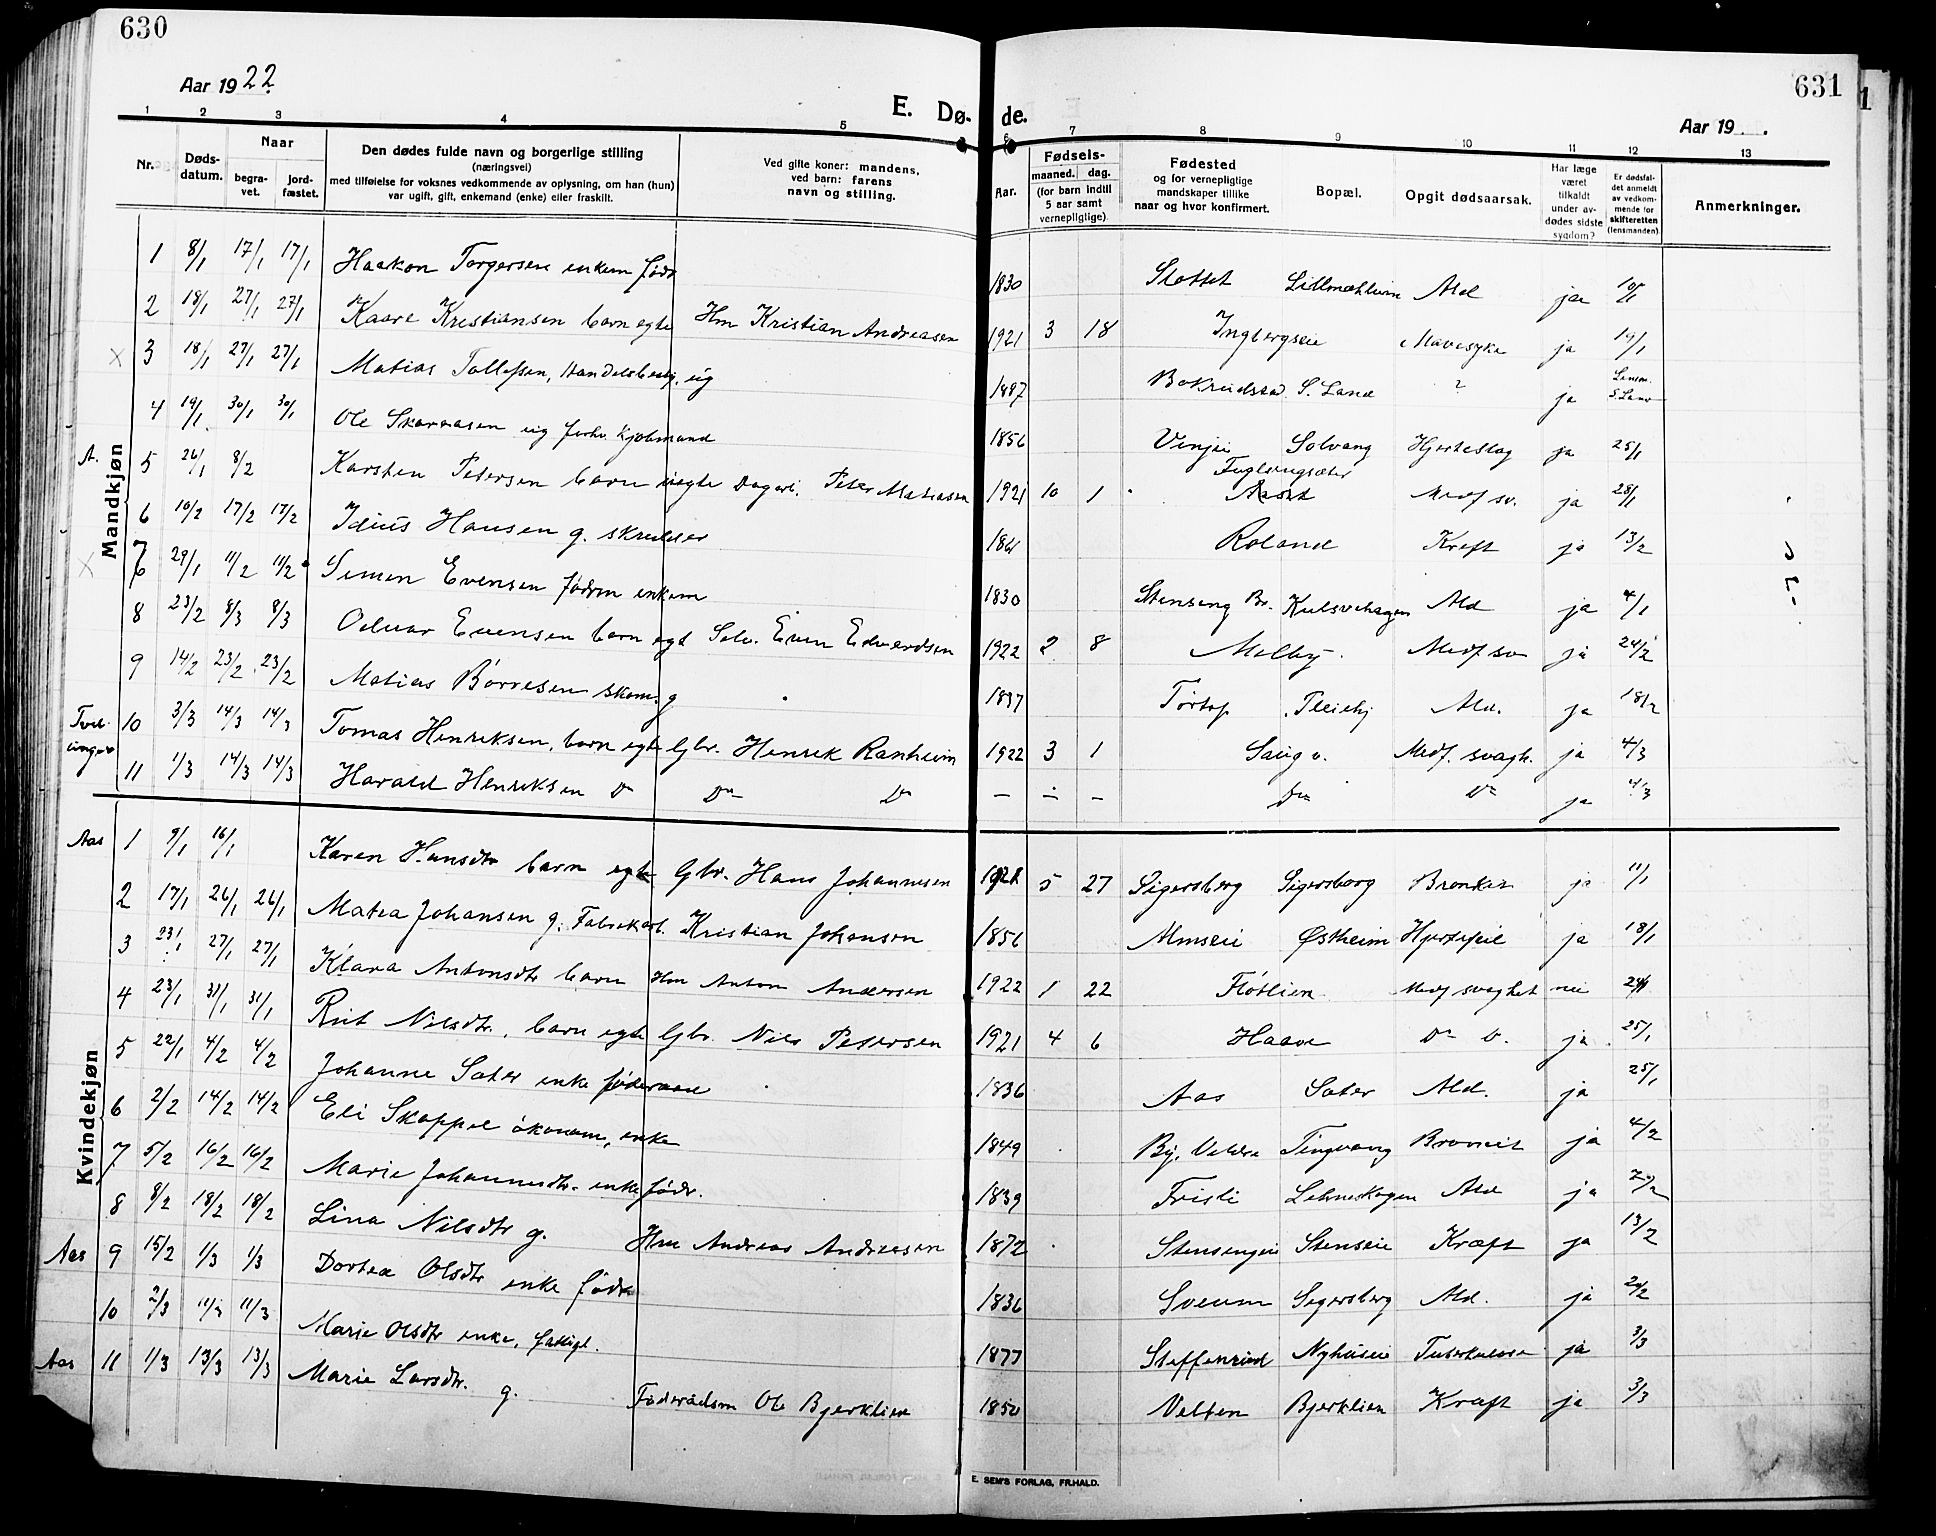 630
Aar 1922.
E. Dø-
1 2 3 4 5
Nr. Døds-datum. Naar begra-vet. jord-fæstet. Den dødes fulde navn og borgerlige stilling (næringsvei) med tilføielse for voksnes vedkommende av oplysning, om han (hun) var ugift, gift, enkemand (enke) eller fraskilt. Ved gifte koner: mandens, ved barn: farens navn og stilling.
de.
631
Aar 19
6 7 8 9 10 11 12 13
Aar. Fødsels-maaned. dag. (for barn indtil 5 aar samt vernepligtige). Fødested og for vernepligtige mandskaper tillike naar og hvor konfirmert. Bopæl. Opgit dødsaarsak. Har læge været tilkaldt under av-dødes sidste sygdom? Er dødsfal-det anmeldt av vedkom-mende for skifteretten (lensmanden) Anmerkninger.
Mandkjøn
1 8/1 17/1 17/1 Haakon Torgersen enkem födr 1830 Slottet Ald ja 10/1
2 18/1 27/1 27/1 Kaare Kristiansen barn egte Hm Kristian Andreasen 1921 3 18 Ingbergseie Mavesyke ja 19/1
3 18/1 27/1 27/1 Matias Tollefsen, Handelsbestj. ug 1887 S. Land ? ja Lensm. S. Land
4 19/1 30/1 30/1 Ole Skaraasen ug forhv. Kjøbmand 1856 Solvang Hjerteslag ja 25/1
A. 5 26/1 8/2 Karsten Petersen barn uegte Dagarb. Peter Matiasen 1921 10 1 Medf sv. ja 28/1
6 10/2 17/2 17/2 Hansen g. skredder 1861 Roland Kreft ja 13/2
7 29/1 11/2 11/2 Simen Evensen födrm enkem 1830 Stenseng Br. Kulsvehagen Ald ja 4/1
8 23/2 8/3 8/3 Odvar Evensen barn egt Selv. Even Edvardsen 1922 2 8 Melby. Medf sv ja 24/2
9 14/2 23/2 23/2 Matias Börresen skom. g 1837 Ald. ja 18/2
Tvil-linger 10 3/3 14/3 14/3 Tomas Henriksen, barn egte Gbr. Henrik Ranheim 1922 3 1 Saug v. Medf. svagh. ja 4/3
11 1/3 14/3 14/3 Harald Henriksen Do Do Do – – – Do Do ja 4/3
Kvindekjøn
Aas 1 9/1 16/1 Karen Hansdtr barn egte Gbr. Hans Johannesen 5 27 Sigersberg Sigersberg Bronkit ja 11/1
2 17/1 26/1 26/1 Matea Johansen g. Fabrikarb. Kristian Johansen 1856 Almseie Østheim Hjertefeil ja 18/1
3 23/1 27/1 27/1 Klara Antonsdtr barn Hm Anton Andersen 1922 1 22 Flötlien Medf svaghet nei 24/1
4 23/1 31/1 31/1 Rut Nilsdtr. barn egte Gbr. Nils Petersen 1921 4 6 Haave Do ja 25/1
5 22/1 4/2 4/2 Johanne Sater enke föderaad 1836 Aas Sater Ald. ja 25/1
6 2/2 14/2 14/2 Eli Skappel ökonom, enke 1849 Tingvang ja 4/2
7 5/2 16/2 16/2 Marie Johannesdtr. enke födr. 1839 Fristi Lehneskogen Ald ja
8 8/2 18/2 18/2 Lina Nilsdtr g. Hm Andreas Andreasen 1872 Stensengeie Stenseie Kræft ja 13/2
Aas 9 15/2 1/3 1/3 Dortea Olsdtr enke födr 1836 Sveum Segersberg Ald. ja
10 2/3 11/3 11/3 Marie Olsdtr enke, fattigl. 1877 Steffenrud Nyhuseie Tuberkulose ja 3/3
Aas 11 1/3 13/3 13/3 Marie Larsdtr. g. Föderådsm Ole Bjerklien 1850 Velten Bjerklien Kræft ja 3/3
E. SEM'S FORLAG, FR.HALD.